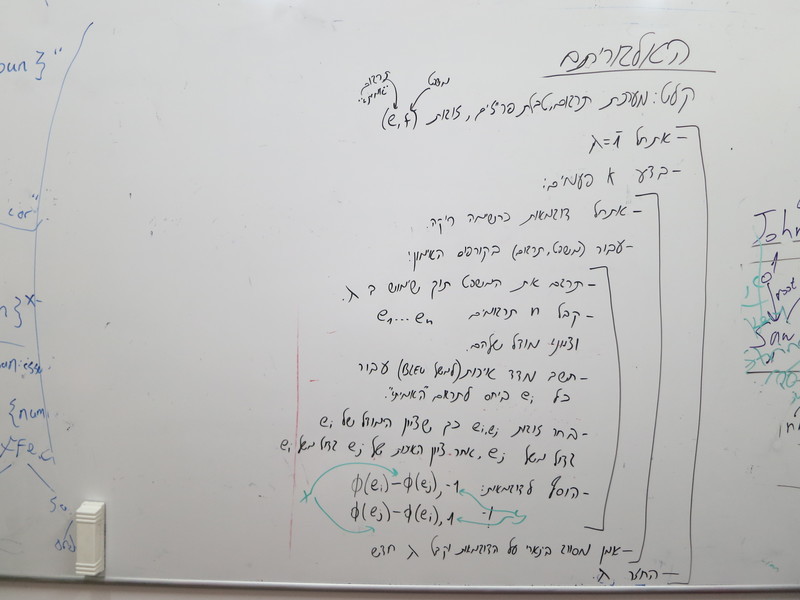 האלגוריתם
תרגום
"אמיתי"
משפט
קלט: מערכת תרגום, טבלת פריזים, זוגות (e,f)
- אתחל λ=1̄
- בצע k פעמים:
- אתחל דוגמאות כרשימה ריקה.
- עבור (משפט, תרגום) בקורפוס האימון:
- תרגם את המשפט תוך שימוש ב λ.
- קבל n תרגומים e₁...eₙ
וציוני מודל שלהם.
- חשב מדד איכות (למשל BLEU) עבור
כל eᵢ ביחס לתרגום "האמיתי".
- בחר זוגות eᵢ,eⱼ כך שציון המודל של eᵢ
גדול משל eⱼ, אמר ציון האיכות של eⱼ גדול משל eᵢ
- הוסף לדוגמאות: φ(eᵢ)-φ(eⱼ),-1
φ(eⱼ)-φ(eᵢ),1
x
-1
- אמן מסווג בינארי על הדוגמאות וקבל λ חדש
- החזר λ.
oun}"
cor"
n}
{num
John
Saw